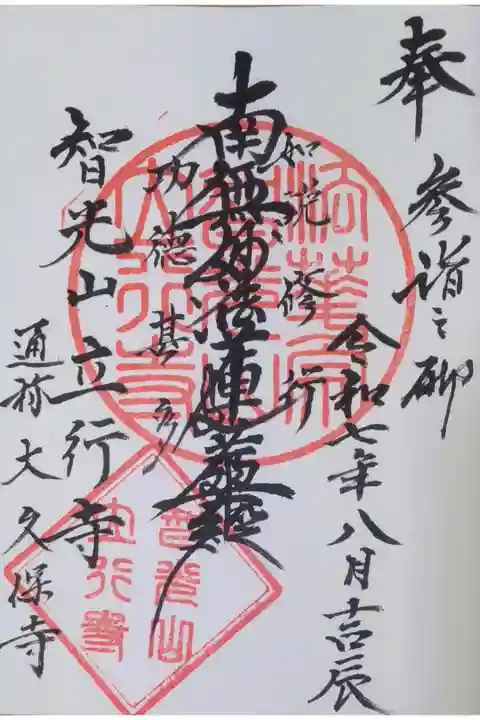 奉 参詣之砌
令和七年八月吉辰
如説修行
南無妙法蓮華経
功徳甚多
智光山立行寺
通称大久保寺